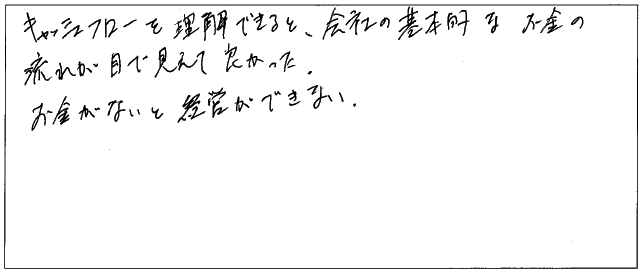 キャッシュフローを理解できると、会社の基本的な お金の
流れが目で見えて良かった。
お金がないと経営ができない。